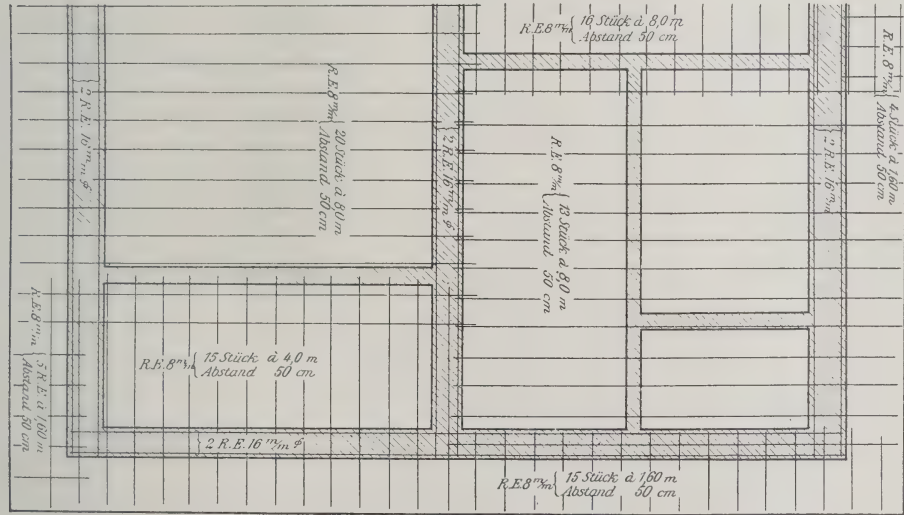 R.E. 8 m/m { 16 Stück à 8,0 m
Abstand 50 cm
R.E. 8 m/m { 4 Stück à 1,60 m
Abstand 50 cm
{ 2 R.E. 16 m/m ϕ
R.E. 8 m/m { 20 Stück à 8,0 m
Abstand 50 cm
{ 2 R.E. 16 m/m ϕ
R.E. 8 m/m { 13 Stück à 8,0 m
Abstand 50 cm
{ 2 R.E. 16 m/m
R.E. 8 m/m { 5 R.E. à 1,60 m
Abstand 50 cm
R.E. 8 m/m { 15 Stück à 4,0 m
Abstand 50 cm
2 R.E. 16 m/m ϕ
R.E. 8 m/m { 15 Stück à 1,60 m
Abstand 50 cm